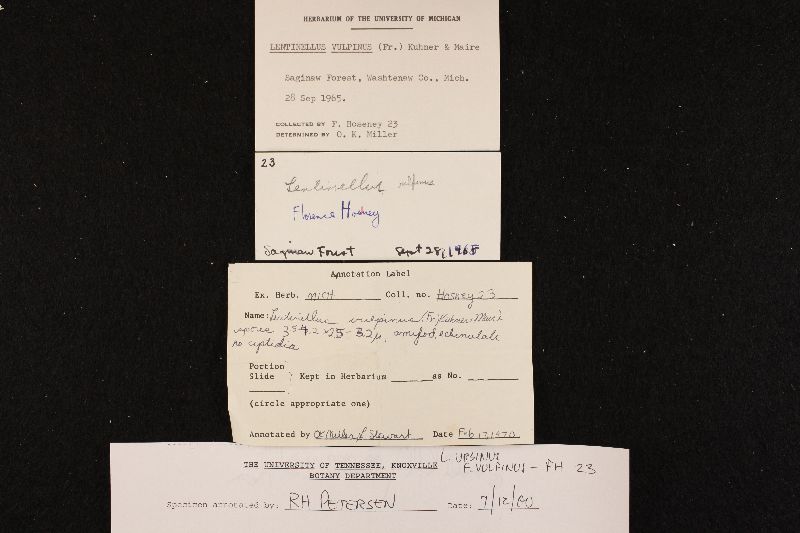 HERBARIUM OF THE UNIVERSITY OF MICHIGAN
LENTINELLUS VULPINUS (Fr.) Kuhner & Maire
Saginaw Forest, Washtenaw Co., Mich.
28 Sep 1965.
COLLECTED BY F. Hoseney 23
DETERMINED BY O. K. Miller
23
Lentinellus vulpinus
Florence Hoseney
Saginaw Forest Sept 28, 1965
Annotation Label
Ex. Herb. MICH Coll. no. Hosney 23
Name: Lentinellus vulpinus (Fr.) Kuhner & Maire
spores 3.5-4.2 x 2.5-3.2 µ, amyloid, echinulate
no cystidia
Portion
Slide } Kept in Herbarium as No.
(circle appropriate one)
Annotated by OK Miller & L Stewart Date Feb 12, 1970
THE UNIVERSITY OF TENNESSEE, KNOXVILLE
BOTANY DEPARTMENT
L. URSINUS
F. VULPINUS - FH 23
Specimen annotated by: RH PETERSEN Date: 7/12/00